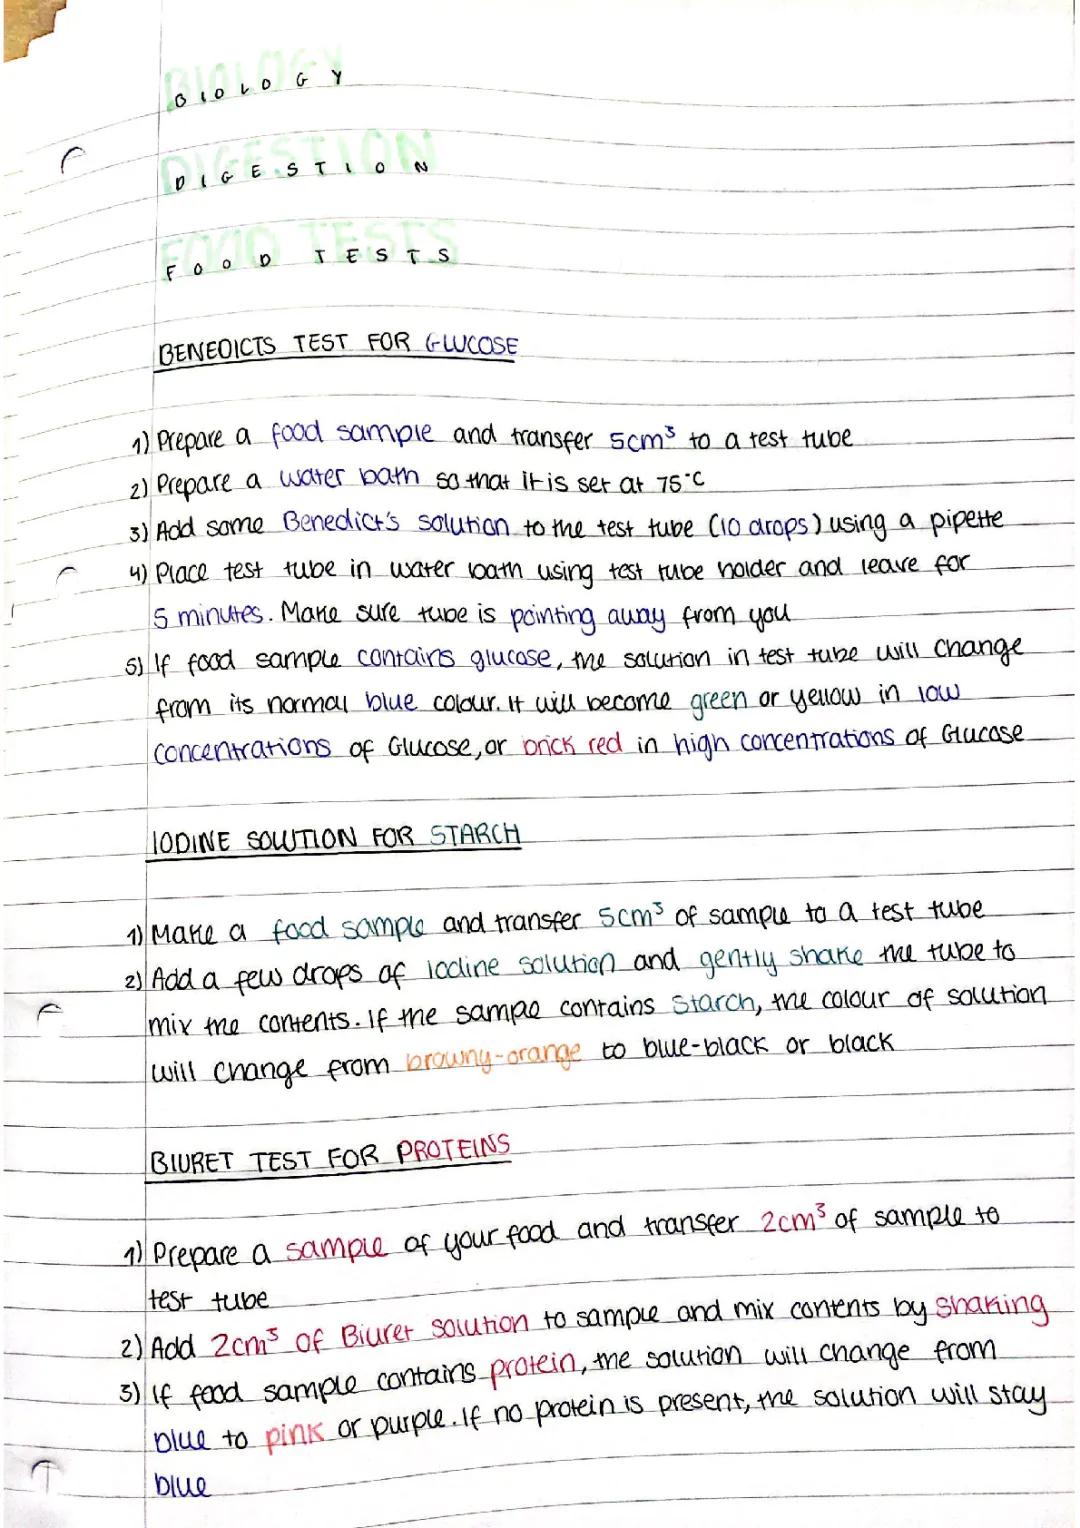 BIOLOGY
BIOLOGY
DIGESTION
DIGESTION
FOOD TESTS
FOOD TESTS
BENEDICTS TEST FOR GLUCOSE
1) Prepare a food sample and transfer 5cm³ to a test tube
2) Prepare a water bath so that it is set at 75°C
3) Add some Benedict's solution to the test tube (10 drops) using a pipette
4) Place test tube in water bath using test tube holder and leave for
5 minutes. Make sure tube is pointing away from you
5) If food sample contains glucose, the solution in test tube will change
from its normal blue colour. It will become green or yellow in low
concentrations of Glucose, or brick red in high concentrations of Glucose
IODINE SOLUTION FOR STARCH
1) Make a food sample and transfer 5cm³ of sample to a test tube
2) Add a few drops of iodine solution and gently shake the tube to
mix the contents. If the sampe contains starch, the colour of solution
will change from browny-orange to blue-black or black
BIURET TEST FOR PROTEINS
1) Prepare a sample of your food and transfer 2cm³ of sample to
test tube
2) Add 2cm³ of Biuret solution to sample and mix contents by shaking
3) If food sample contains protein, the solution will change from
blue to pink or purple. If no protein is present, the solution will stay
blue